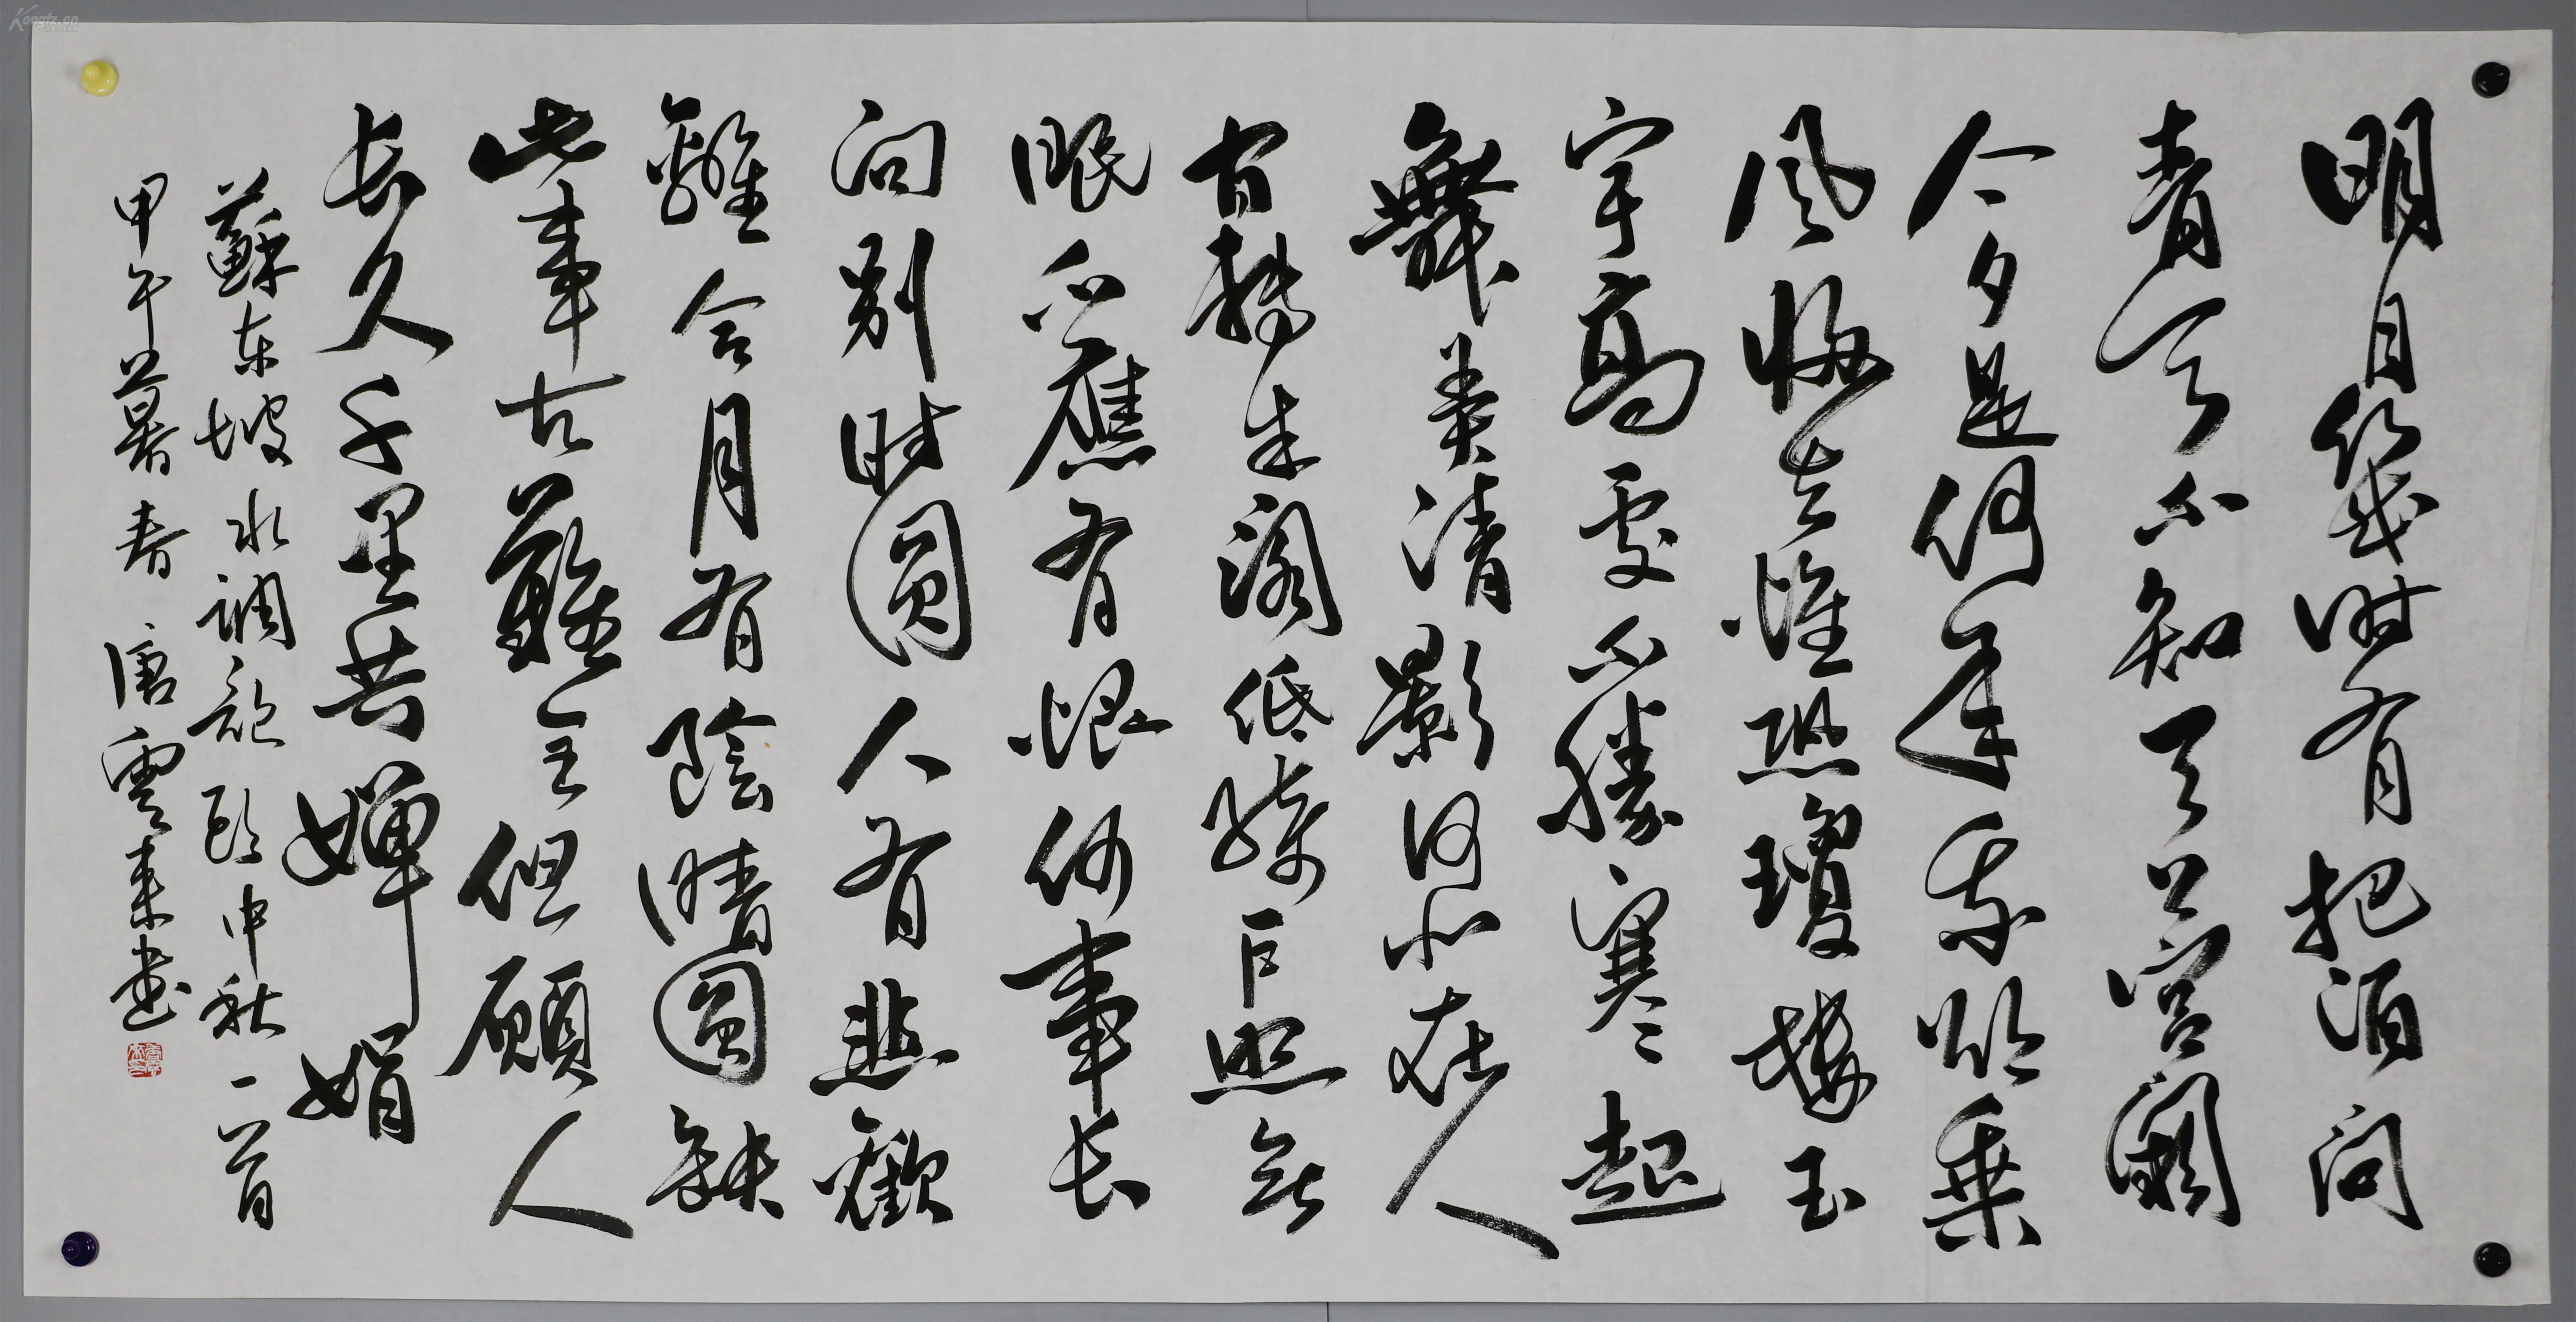 明月幾时有把酒问
青天不知天上宫阙
今夕是何年我欲乘
風歸去惟恐瓊楼玉
宇高處不勝寒起
舞弄清影何似在人
间转朱阁低绮户照無
眠不應有恨何事长
向别时圆人有悲歡
離合月有陰晴圆缺
此事古難全但願人
长久千里共嬋娟
蘇东坡水调歌頭中秋一首
甲午暮春 唐雲来书
Kongfz.cn